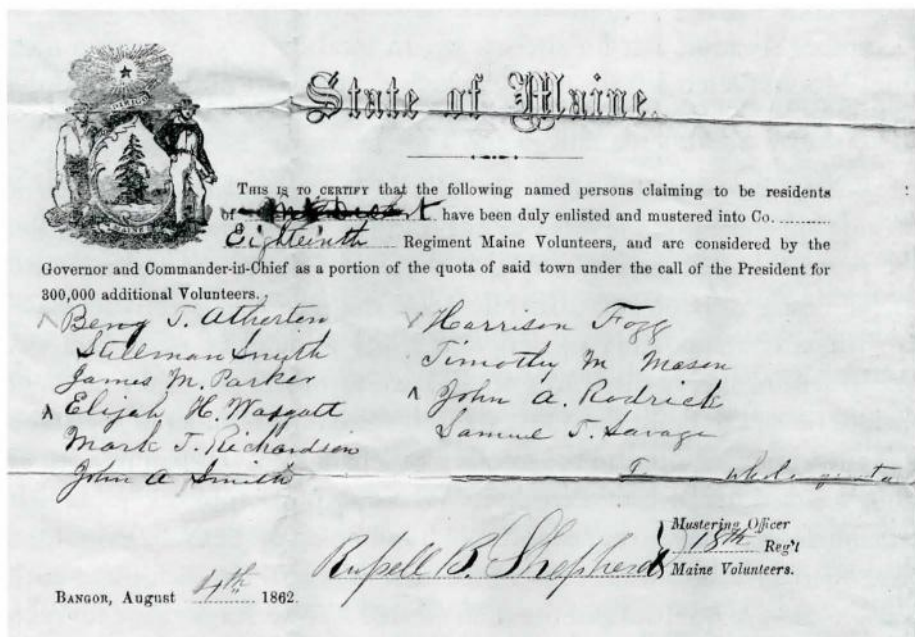 DIRIGO
MAINE
State of Maine.
THIS IS TO CERTIFY that the following named persons claiming to be residents
of have been duly enlisted and mustered into Co.
Eighteinth Regiment Maine Volunteers, and are considered by the
Governor and Commander-in-Chief as a portion of the quota of said town under the call of the President for
300,000 additional Volunteers.
Benj T. Atherton
Stillman Smith
James M. Parker
Elijah H. Wasgatt
Mark T. Richardson
John A Smith
Harrison Fogg
Timothy M Mason
John A. Rodrick
Samuel T. Savage
whole quota
Russell B. Shepherd
Mustering Officer
18th Reg't
Maine Volunteers.
BANGOR, August 1862.